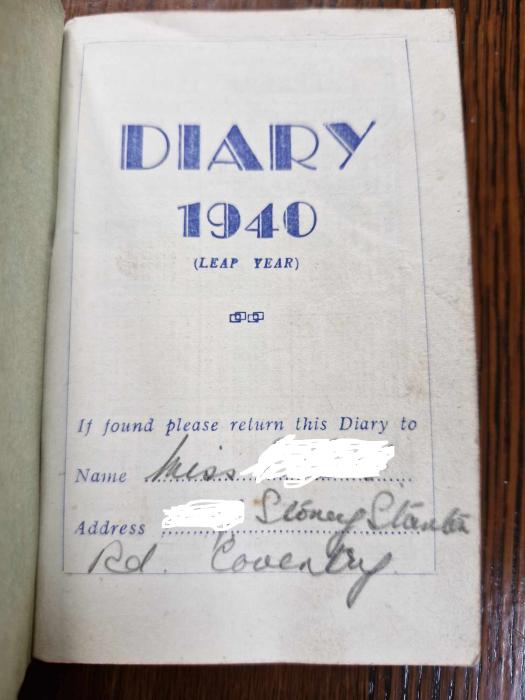 DIARY
1940
(LEAP YEAR)
If found please return this Diary to
Name Miss
Address Stoney Stanton
Rd. Coventry